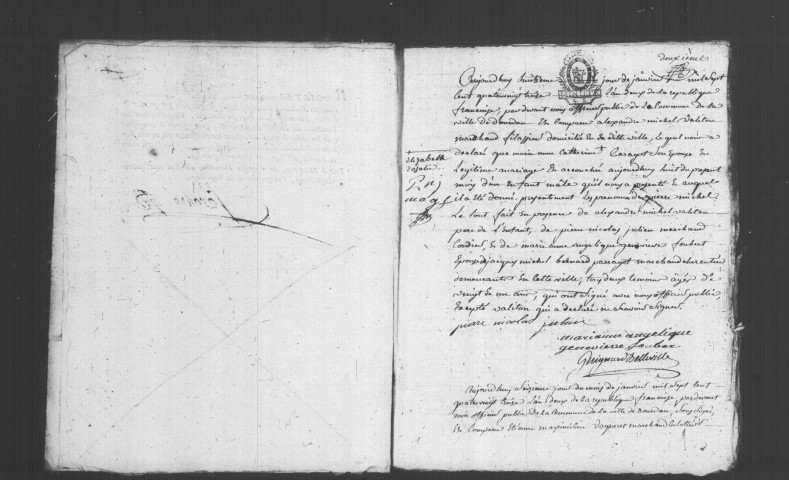 deuxième
Aujourdhuy huitieme jour de janvier mil sept
Cent quatrevingt treize l'an deux de la republique
francaise, pardevant nous officier public de la Commune de la
ville de Dourdan Est Comparu alexandre michel Valiton
marchand filassier domicilié en cette ville, lequel nous a
declaré que marie anne Catherine + parayot Son Epouse En
Legitime mariage est accouchée aujourdhuy huit du present
mois d'un Enfant male qu'il nous a presenté Et auquel
il a été donné presentement les prenoms de pierre michel
Le tout fait En presence de alexandre michel valiton
pere de l'Enfant, de pierre nicolas julien marchand
Cordier, Et de marie anne angelique genevieve foubert
Epouse de jacques michel bernard parrayot marchand
demeurants En cette ville, tous deux temoins agés de
vingt Et un ans, qui ont signé avec nous officier public,
Excepté valiton qui a declaré ne savoir signer.
+ elizabeth
rosalie
piere nicolas julien
marianne angelique
genevierre foubert
Guignard Belleville
Aujourdhuy seizieme jour du mois de janvier mil sept Cent
quatrevingt treize l'an deux de la republique francaise, pardevant
nous officier public de la Commune de la ville de Dourdan, soussigné,
Est Comparu Etienne maximilien marchand